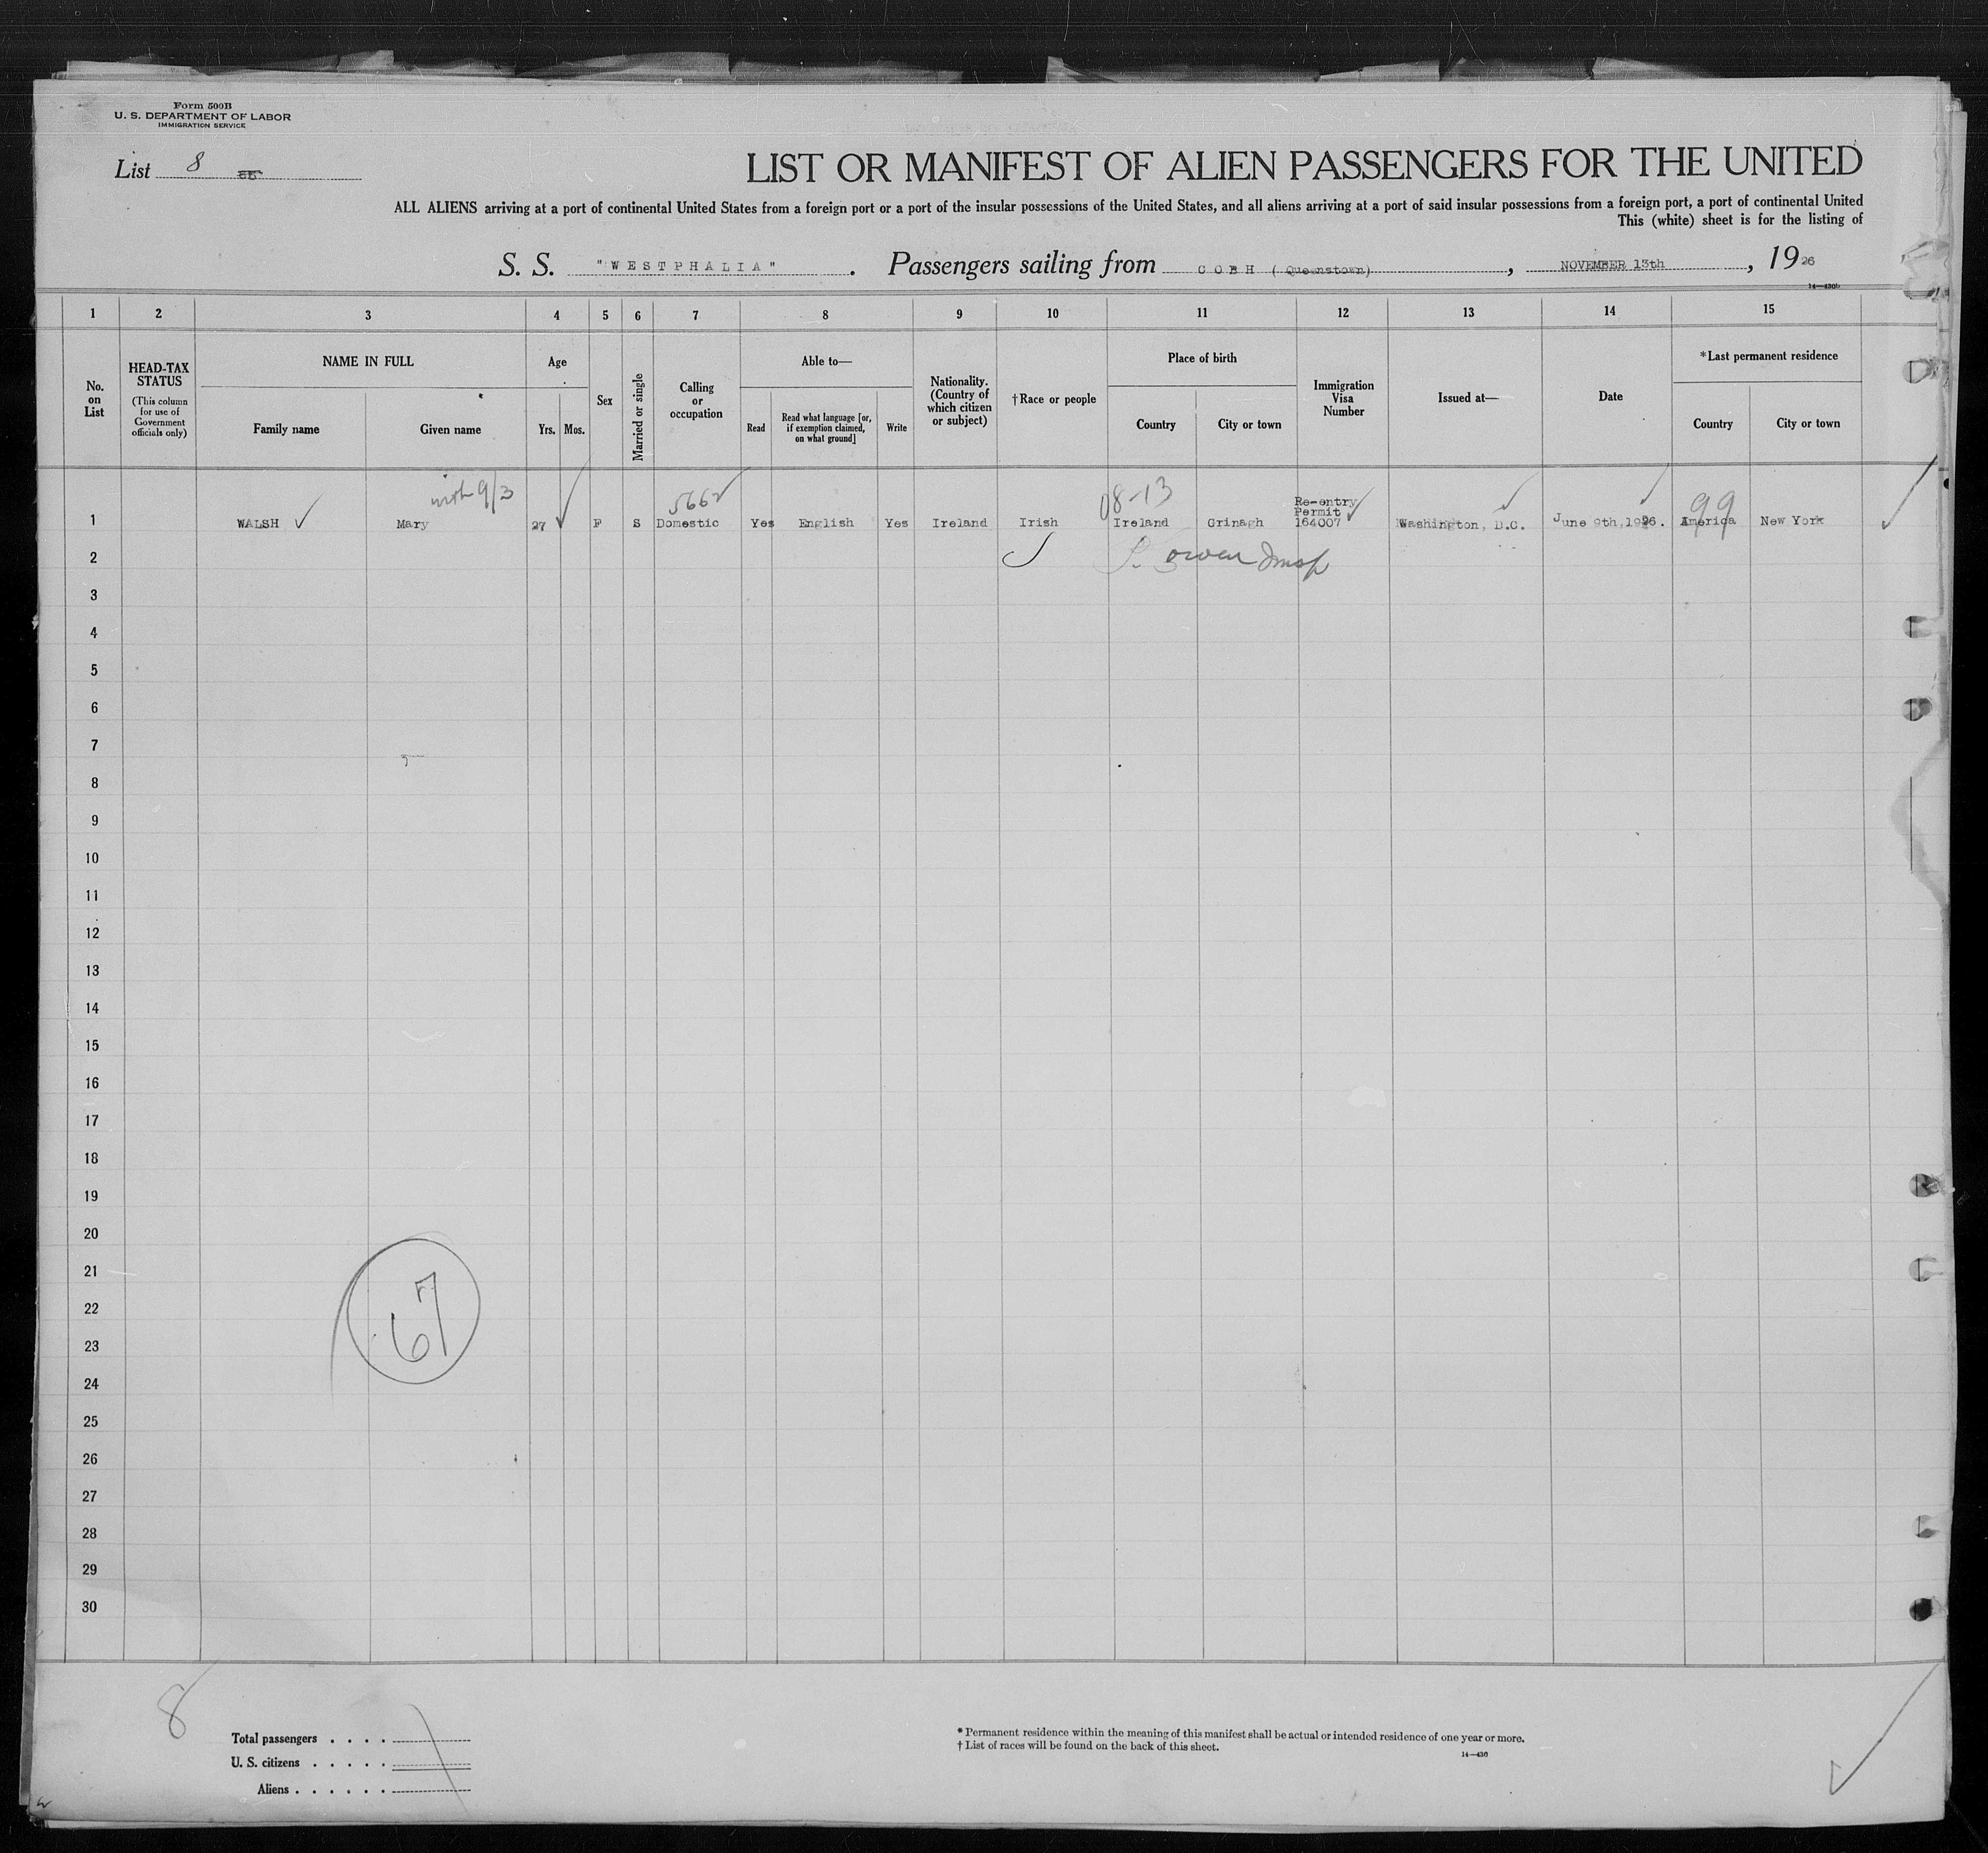 Form 500B
U. S. DEPARTMENT OF LABOR
IMMIGRATION SERVICE
List 8
LIST OR MANIFEST OF ALIEN PASSENGERS FOR THE UNITED
ALL ALIENS arriving at a port of continental United States from a foreign port or a port of the insular possessions of the United States, and all aliens arriving at a port of said insular possessions from a foreign port, a port of continental United
This (white) sheet is for the listing of
S. S. "WESTPHALIA". Passengers sailing from COBH (Queenstown), NOVEMBER 13th, 1926
14—430b
1 2 3 4 5 6 7 8 9 10 11 12 13 14 15
No. on List
HEAD-TAX STATUS
(This column for use of Government officials only)
NAME IN FULL
Family name
Given name
Age
Yrs. Mos.
Sex
Married or single
Calling or occupation
Able to—
Read
Read what language [or, if exemption claimed, on what ground]
Write
Nationality. (Country of which citizen or subject)
†Race or people
Place of birth
Country
City or town
Immigration Visa Number
Issued at—
Date
*Last permanent residence
Country
City or town
with 9/3
5662
08-13
99
1 WALSH Mary 27 F S Domestic Yes English Yes Ireland Irish Ireland Grinagh Re-entry Permit 164007 Washington, D.C. June 9th, 1926. America New York
2
3
4
5
6
7
8
9
10
11
12
13
14
15
16
17
18
19
20
21
22
23
24
25
26
27
28
29
30
67
8
Total passengers . . . .
U. S. citizens . . . . .
Aliens . . . . . .
* Permanent residence within the meaning of this manifest shall be actual or intended residence of one year or more.
† List of races will be found on the back of this sheet.
14—430